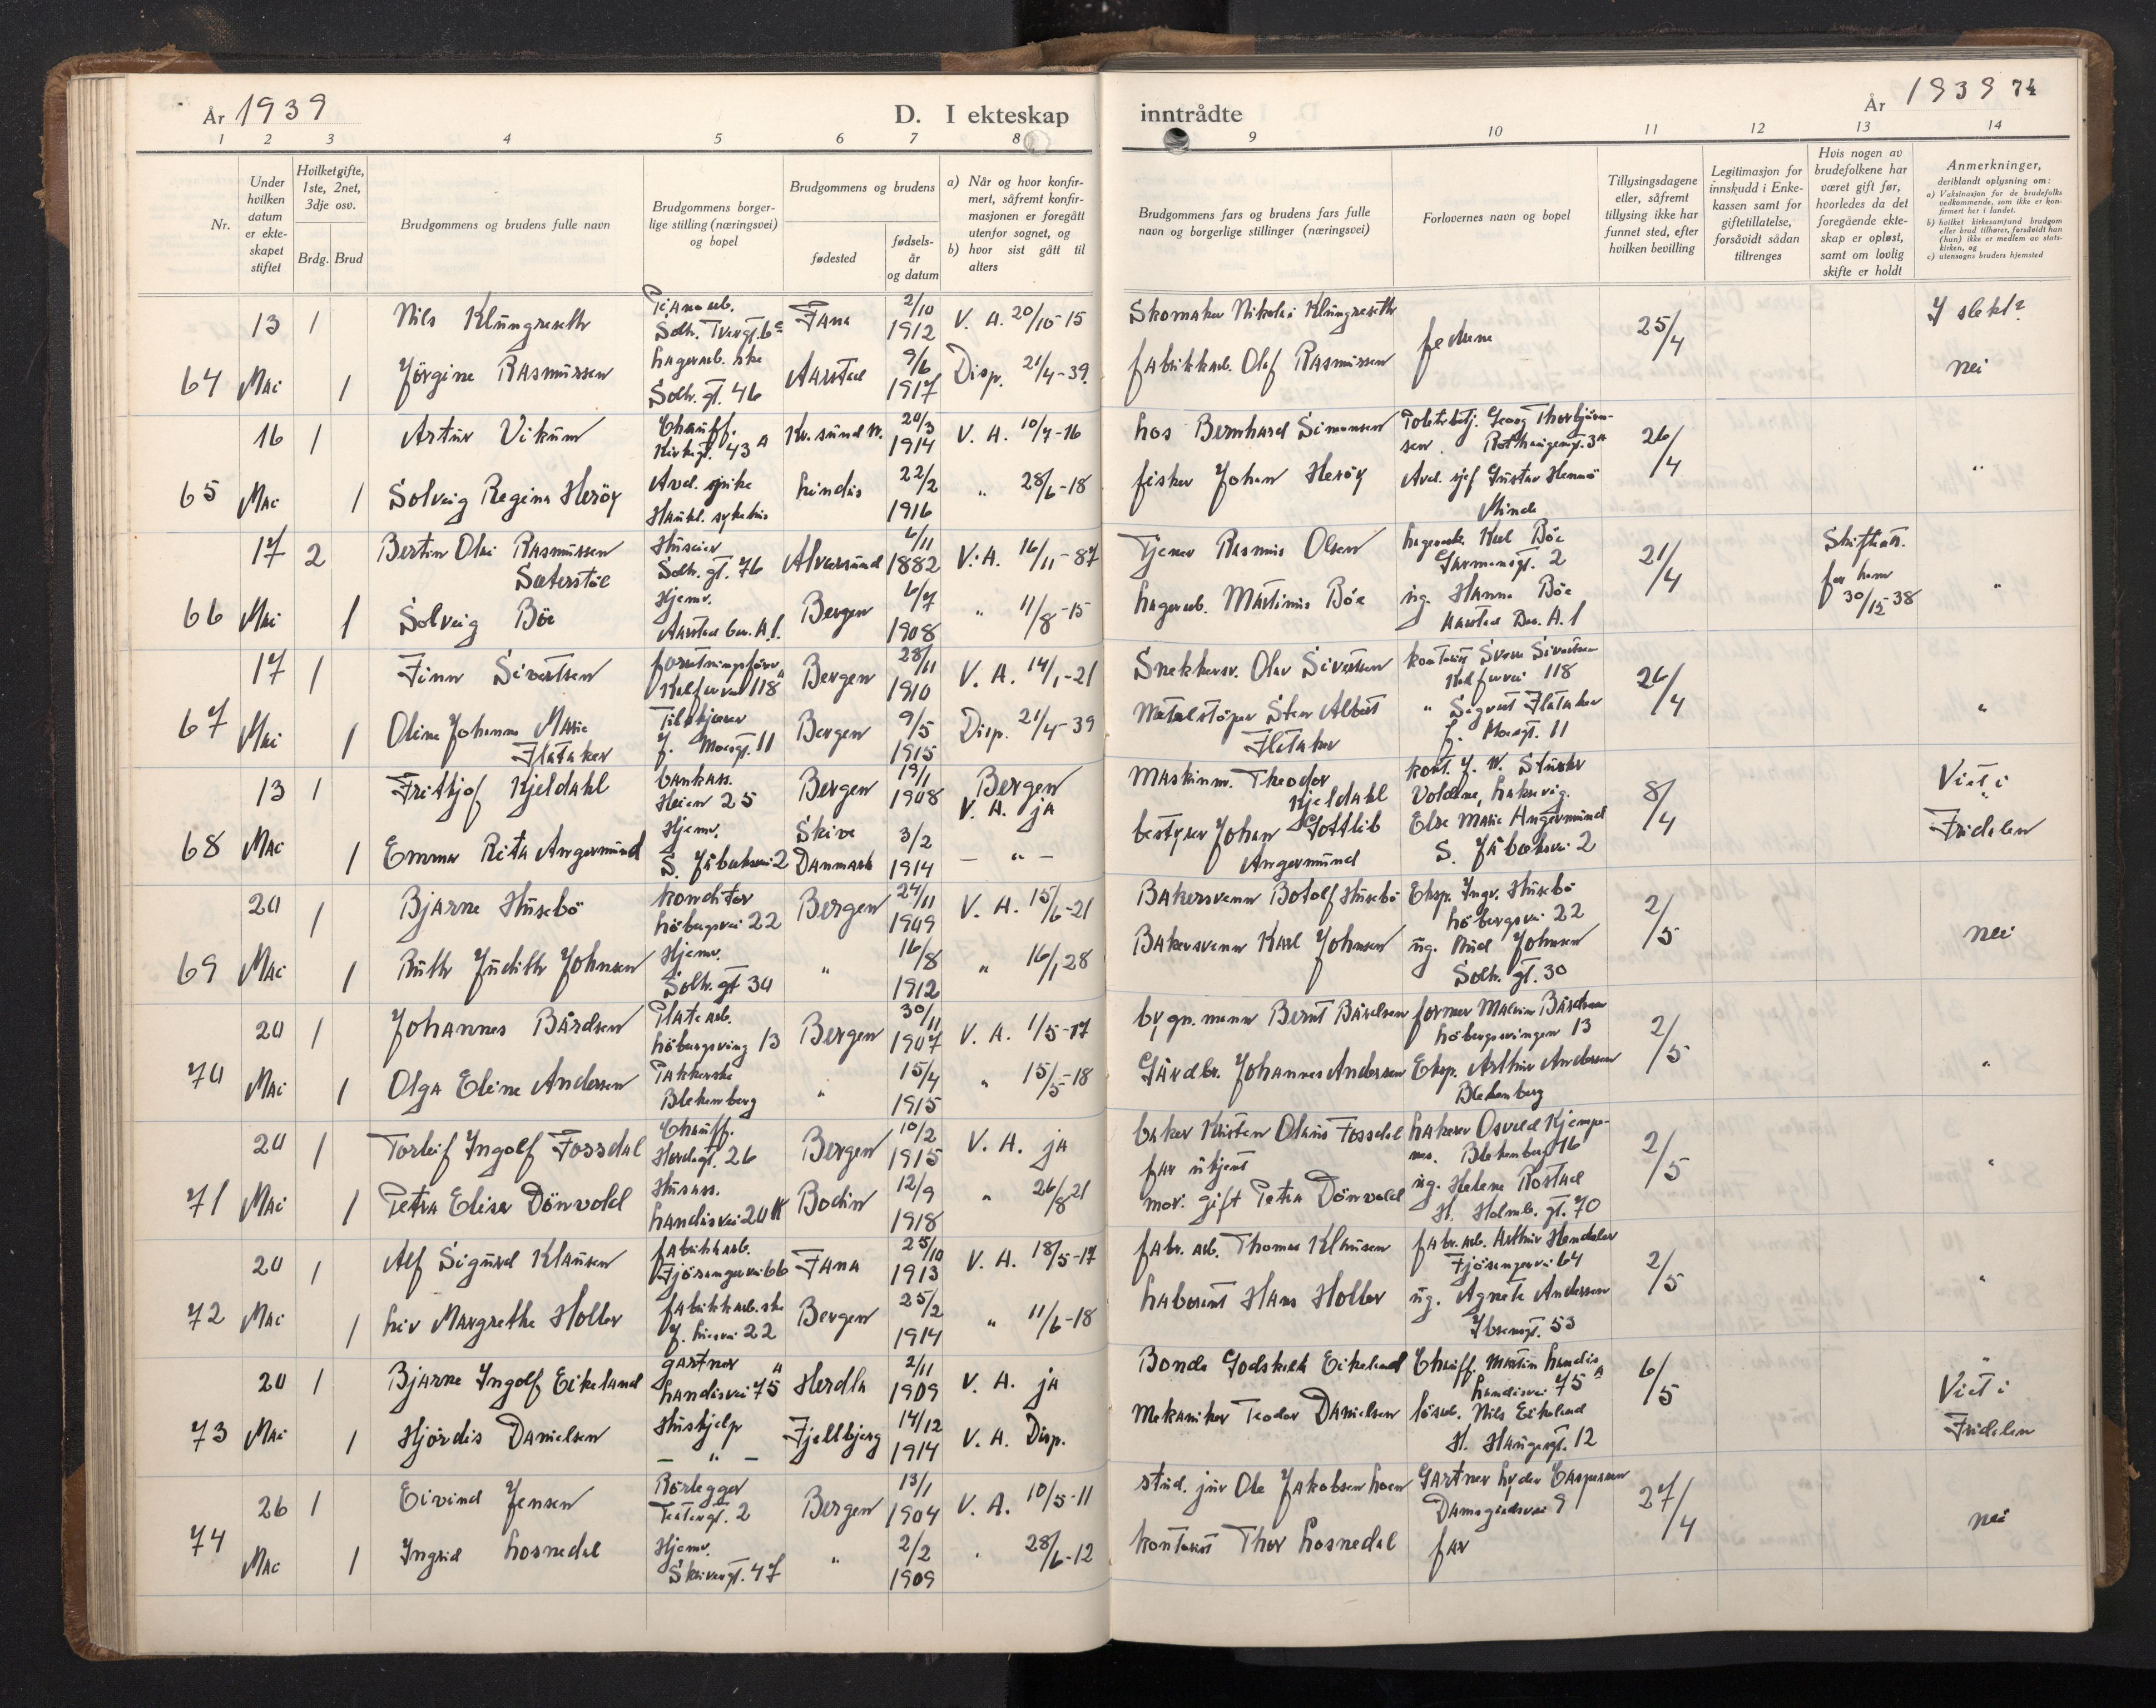 År 1939
D. I ekteskap
inntrådte
År 1939 74
1 2 3 4 5 6 7 8 9 10 11 12 13 14
Nr.
Under hvilken datum er ekteskapet stiftet
Hvilketgifte, 1ste, 2net, 3dje osv.
Brdg. Brud
Brudgommens og brudens fulle navn
Brudgommens borgerlige stilling (næringsvei) og bopel
Brudgommens og brudens
fødested
fødselsår og datum
a) Når og hvor konfirmert, såfremt konfirmasjonen er foregått utenfor sognet, og
b) hvor sist gått til alters
Brudgommens fars og brudens fars fulle navn og borgerlige stillinger (næringsvei)
Forlovernes navn og bopel
Tillysingsdagene eller, såfremt tillysing ikke har funnet sted, efter hvilken bevilling
Legitimasjon for innskudd i Enkekassen samt for giftetillatelse, forsåvidt sådan tiltrenges
Hvis nogen av brudefolkene har været gift før, hvorledes da det foregående ekteskap er opløst, samt om lovlig skifte er holdt
Anmerkninger,
deriblandt oplysning om:
a) Vaksinasjon for de brudefolks vedkommende, som ikke er konfirmert her i landet.
b) hvilket kirkesamfund brudgom eller brud tilhører, forsåvidt han (hun) ikke er medlem av statskirken, og
c) utensogns bruders hjemsted
13 1 Nils Klungreseth Solh. Tvergt. 6c Fana 2/10 1912 V. A. 20/10-15 Skomaker Nikolai Klungreseth 25/4 I slekt?
64 Mai 1 Jörgine Rasmussen Solh. gt. 46 Aarstad 9/6 1917 Disp. 21/4-39. fabrikkarb. Olaf Rasmussen fedrene nei
16 1 Artur Vikum Chauff. Kirkegt. 43A Kr.sund N. 20/3 1914 V. A. 10/7-16 hos Bernhard Simonsen Georg Thorbjörnsen Rothaugengt. 3A 26/4
65 Mai 1 Solveig Regina Heröy Haukl. sykehus Lindås 22/2 1916 " 28/6-18 fisker Johan Heröy Avd. sjef Gustav Hennö Minde "
17 2 Bertin Olai Rasmussen Sæterstöe Huseier Solh. gt. 76 Alversund 6/11 1882 V. A. 16/11-87 Tjener Rasmus Olsen Lagerarb. Karl Böe Garmannsgt. 2 21/4 Skifteatt. for ham 30/12-38
66 Mai 1 Solveig Böe Hjemv. Bergen 6/7 1908 " 11/8-15 Lagerarb. Martinus Böe ug. Hanna Böe "
17 1 Finn Sivertsen forretningsförer Kalfarvei 118A Bergen 28/11 1910 V. A. 14/1-21 Snekkersv. Olav Sivertsen kontorist Sverre Sivertsen Kalfarvei 118 26/4
67 Mai 1 Oline Johanne Marie Flataker J. Moesgt. 11 Bergen 9/5 1915 Disp. 21/4-39 Metalstöper Sten Albert Flataker " Sigurd Flataker J. Moesgt. 11 "
13 1 Fritkjof Kjeldahl bankass. Heien 25 Bergen 19/1 1908 Bergen V. A. ja Maskinm. Theodor Kjeldahl 8/4 Viet i
68 Mai 1 Emma Rita Angermund Hjemv. S. Jåbæksvei 2 Skive Danmark 3/2 1914 – " – bestyrer Johan Gottlib Angermund Else Marie Angermund S. Jåbæksvei 2 Fridalen
20 1 Bjarne Husebö konditor Löbergsvei 22 Bergen 24/11 1909 V. A. 15/6-21 Bakersvenn Botolf Husebö Eksp. Ingv. Husebö Löbergsvei 22 2/5
69 Mai 1 Ruth Judith Johnsen Hjemv. Solh. gt 30 " 16/8 1912 " 16/1 28 Bakersvenn Karl Johnsen ug. Aud Johnsen Solh. gt. 30 nei
20 1 Johannes Bårdsen Platearb. Löbergsving 13 Bergen 30/11 1907 V. A. 1/5-17 bygn. mann Bernt Bårdsen former Bårdsen Löbergsvingen 13 2/5
70 Mai 1 Olga Eline Andersen Pakkerske Blekenberg " 15/4 1915 " 15/5-18 Gårdbr. Johannes Andersen Eksp. Arthur Andersen Blekenberg "
20 1 Torleif Ingolf Fossdal Chauff. Hordagt. 26 Bergen 10/2 1915 V. A. ja baker Kristen Olaus Fossdal Osvald Blekenberg 16 2/5
71 Mai 1 Petra Elise Dönvold Husass. Landåsvei 20 Bodin 12/9 1918 " 26/8 21 far ukjent mor: gift Petra Dönvold ug. Helene Rostad H. Holmb. gt. 70 "
20 1 Alf Sigurd Klausen fabrikkarb. Fjösangervei 66 Fana 25/10 1913 V. A. 18/5-17 fabr. arb. Thomas Klausen fabr. arb. Arthur Fjösangervei 64 2/5
72 Mai 1 Liv Margrethe Holler fabrikkarb.ske J. Liesvei 22 Bergen 25/2 1914 " 11/6-18 Laborant Hans Holler ug. Agnete Andersen Ibsensgt. 53 "
20 1 Bjarne Ingolf Eikeland gartner Landåsvei 75A Herdla 2/11 1909 V. A. ja Bonde Godskalk Eikeland Chauff. Martin Landås Landåsvei 75A 6/5 " Viet i
73 Mai 1 Hjördis Danielsen Hushjelp – " – Fjellbjerg 14/12 1914 V. A. Disp. Mekaniker Teodor Danielsen Nils Eikeland H. Haugesgt. 12 Fridalen
26 1 Eivind Jensen Rörlegger Teatergt. 2 Bergen 13/1 1904 V. A. 10/5-11 stud. jur Ole Jakobsen Gartner Lyder Caspersen Damsgårdsvei 9 27/4
74 Mai 1 Ingrid Losnedal Hjemv. Skivergt. 47 " 2/2 1909 " 28/6-12 kontorist Thor Losnedal far nei